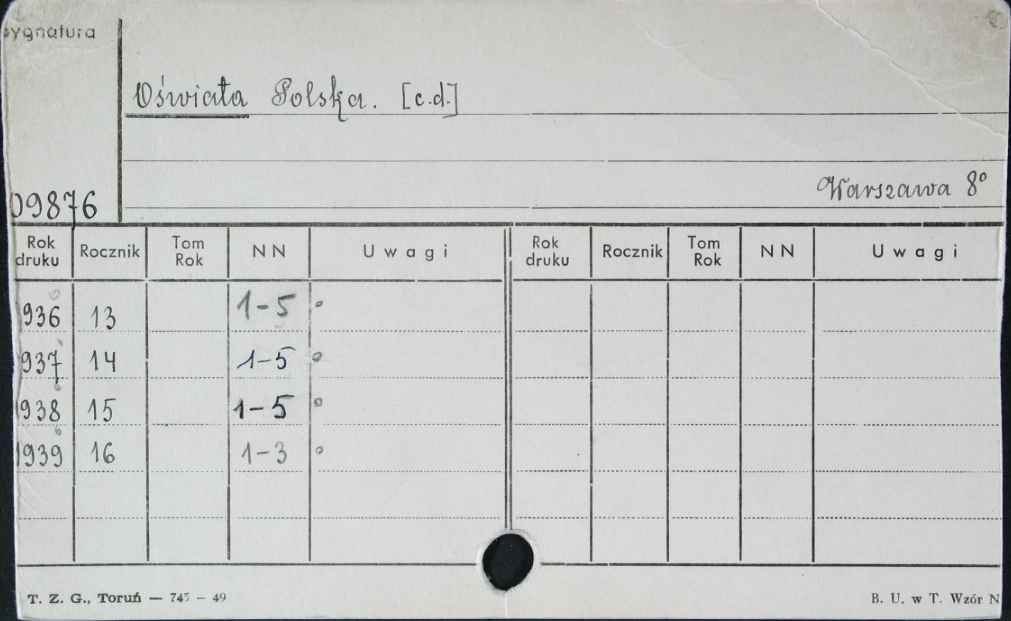 ygnatura
Oświata Polska. [c.d.]
Warszawa 8°
09876
Rok druku Rocznik Tom Rok NN Uwagi Rok druku Rocznik Tom Rok NN Uwagi
1936 13 1-5 °
1937 14 1-5 °
1938 15 1-5 °
1939 16 1-3 °
T. Z. G., Toruń — 745 — 49
B. U. w T. Wzór N